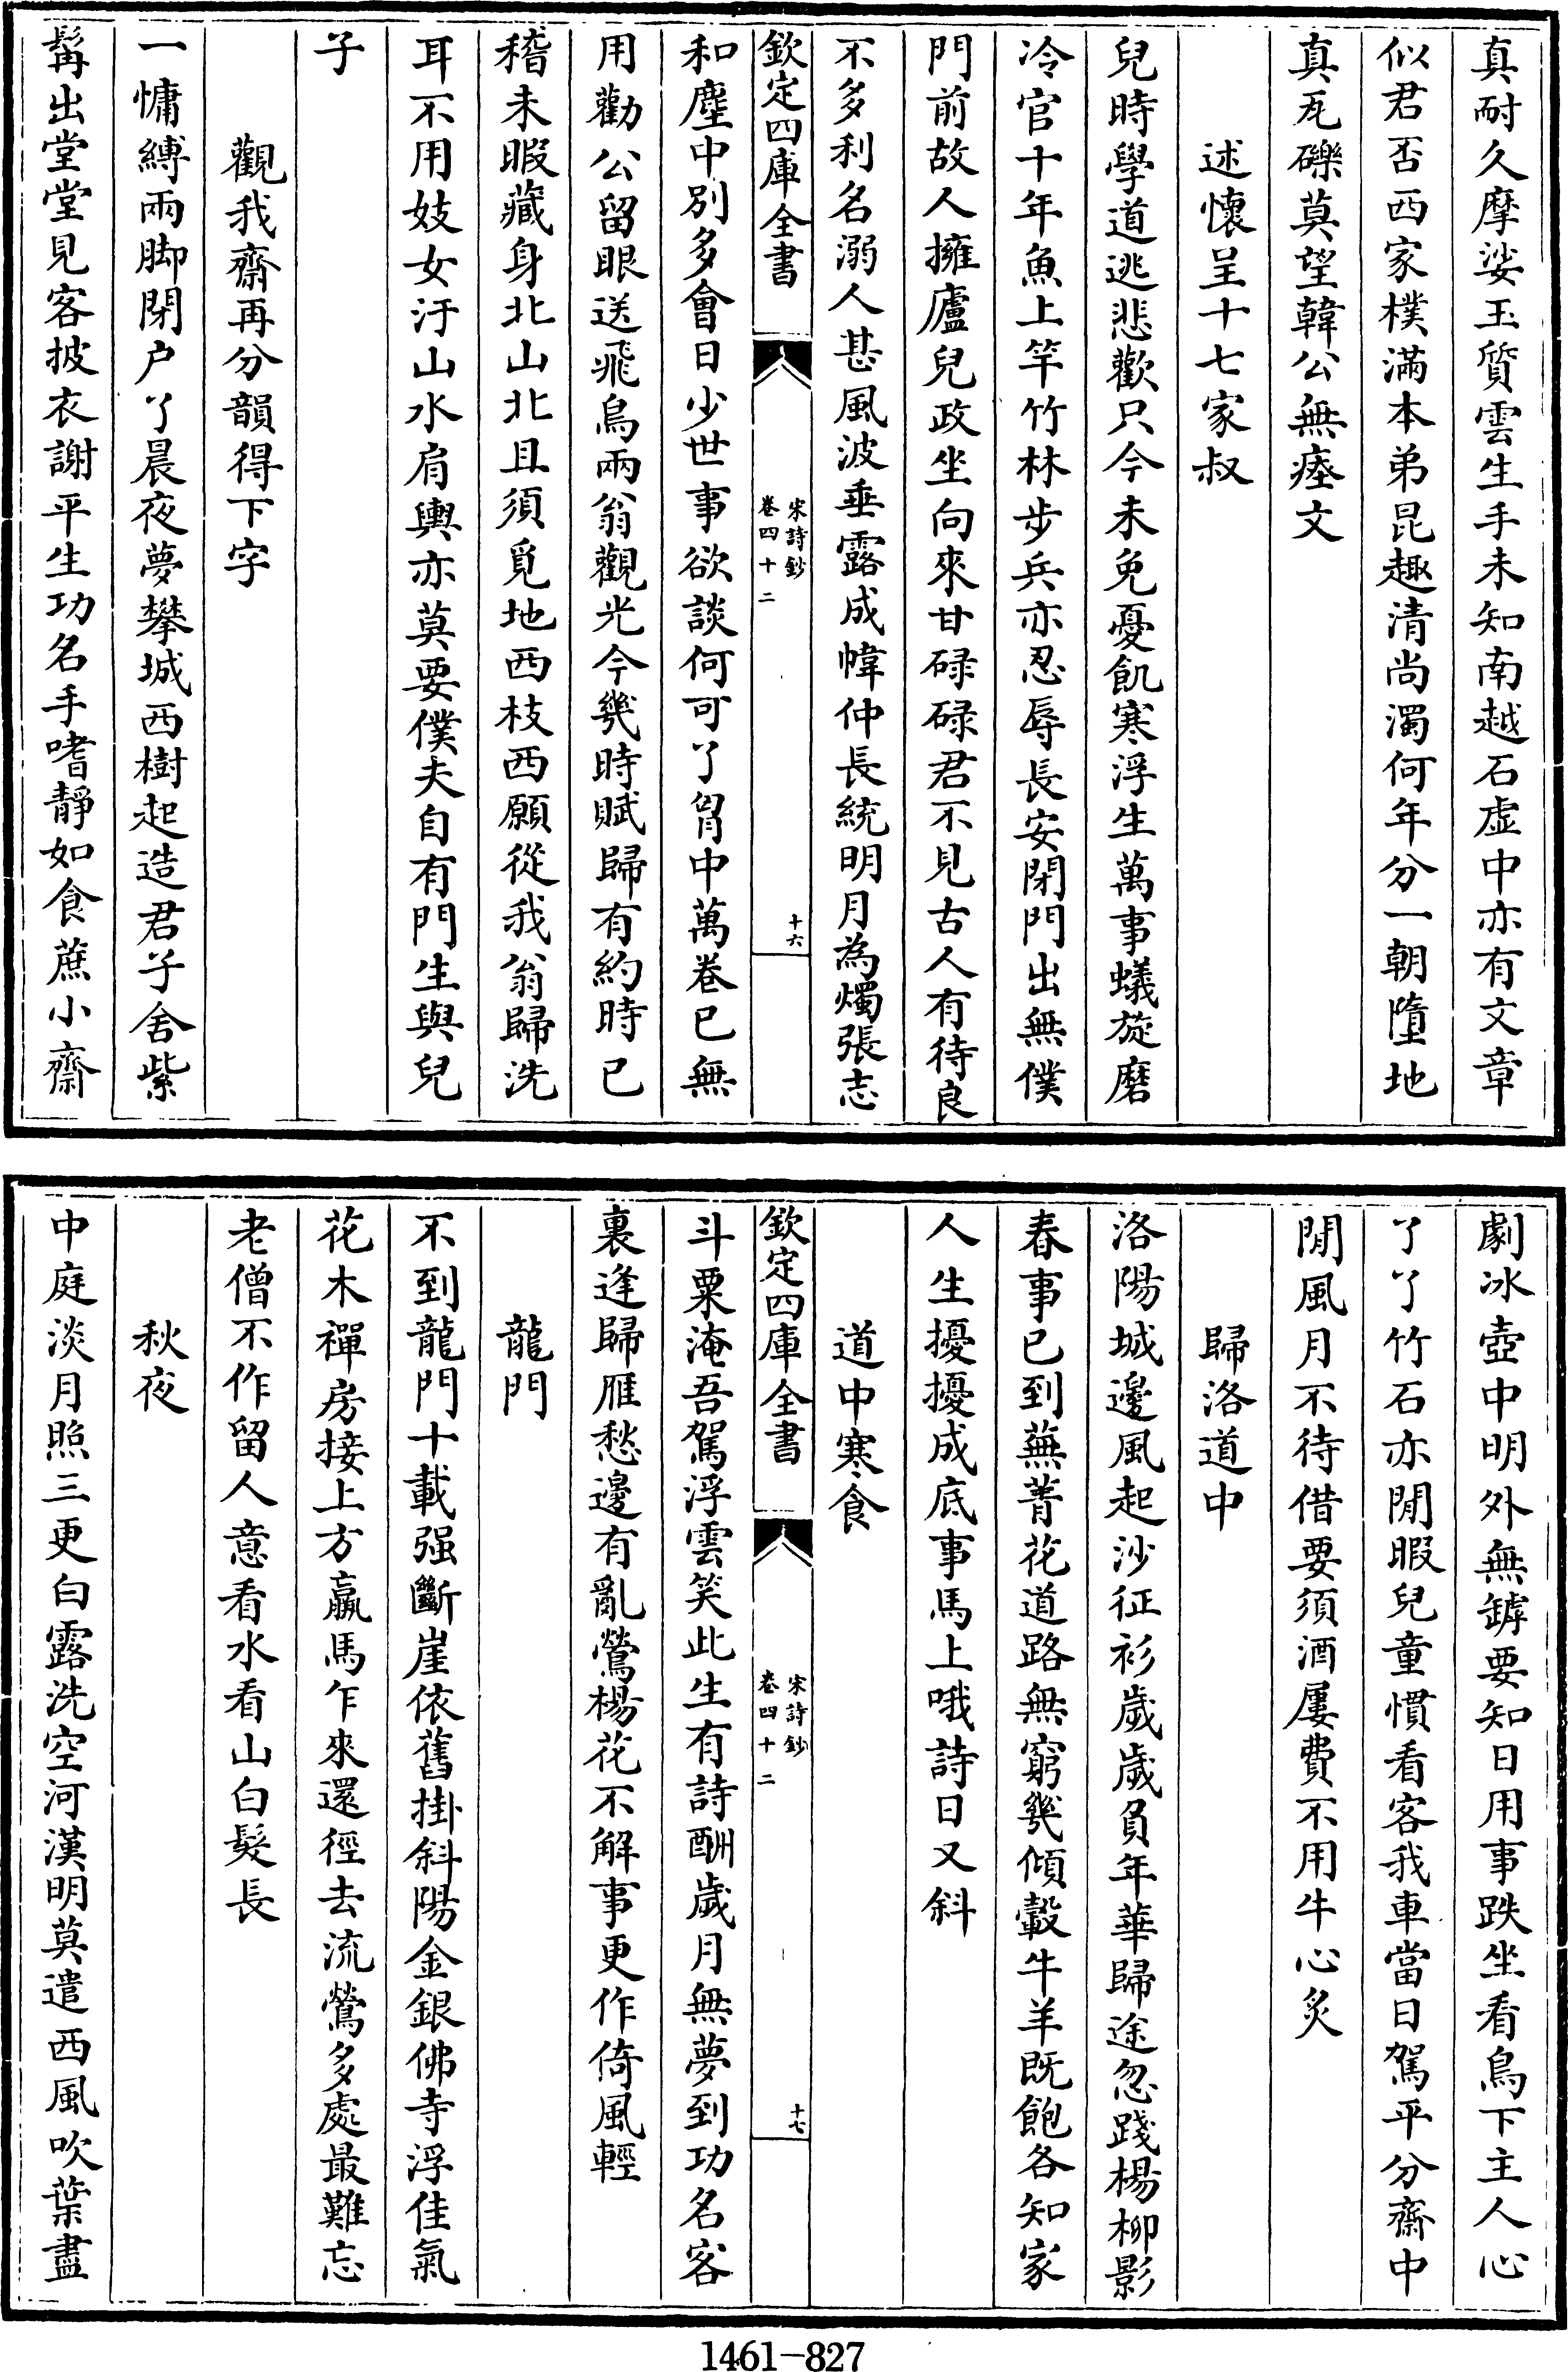 真耐久摩娑玉質雲生手未知南越石虛中亦有文章
似君否西家樸滿本弟昆趣清尚濁何年分一朝墮地
真瓦礫莫望韓公無瘞文
述懷呈十七家叔
兒時學道逃悲歡只今未免憂飢寒浮生萬事蟻旋磨
冷官十年魚上竿竹林步兵亦忍辱長安閉門出無僕
門前故人擁廬兒政坐向來甘碌碌君不見古人有待良
不多利名溺人甚風波垂露成幃仲長統明月為燭張志
欽定四庫全書
宋詩鈔
卷四十二
十六
和塵中別多會日少世事欲談何可了胷中萬卷已無
用勸公留眼送飛鳥兩翁觀光今幾時賦歸有約時已
稽未暇藏身北山北且須覓地西枝西願從我翁歸洗
耳不用妓女汙山水肩輿亦莫要僕夫自有門生與兒
子
觀我齋再分韻得下字
一慵縛兩脚閉户了晨夜夢攀城西樹起造君子舍紫
髯出堂堂見客披衣謝平生功名手嗜靜如食蔗小齋
劇冰壺中明外無罅要知日用事趺坐看鳥下主人心
了了竹石亦閒暇兒童慣看客我車當日駕平分齋中
閒風月不待借要須酒屢費不用牛心炙
歸洛道中
洛陽城邊風起沙征衫歲歲負年華歸途忽踐楊柳影
春事已到蕪菁花道路無窮幾傾轂牛羊既飽各知家
人生擾擾成底事馬上哦詩日又斜
道中寒食
欽定四庫全書
宋詩鈔
卷四十二
十七
斗粟淹吾駕浮雲笑此生有詩酬歲月無夢到功名客
裏逢歸雁愁邊有亂鶯楊花不解事更作倚風輕
龍門
不到龍門十載强斷崖依舊掛斜陽金銀佛寺浮佳氣
花木禪房接上方羸馬乍來還徑去流鶯多處最難忘
老僧不作留人意看水看山白髮長
秋夜
中庭淡月照三更白露洗空河漢明莫遣西風吹葉盡
1461-827